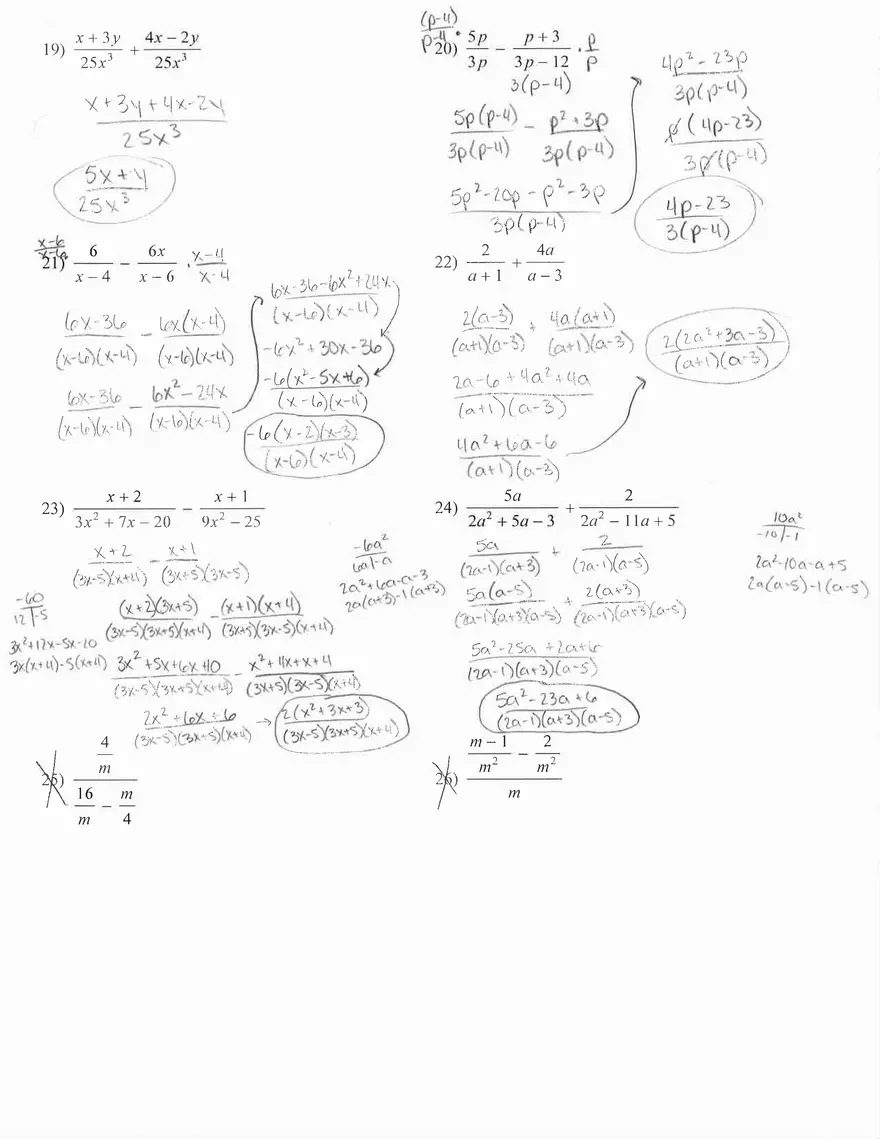 19) (x + 3y)/(25x³) + (4x − 2y)/(25x³)
(x+3y+4x-2y)/(25x³)
(5x+y)/(25x³)
(p-4)/(p-4) •
20) 5p/3p − (p + 3)/(3p − 12) · p/p
3(p-4)
5p(p-4)/3p(p-4) - (p²+3p)/3p(p-4)
(5p²-20p - p²-3p)/3p(p-4)
(4p²-23p)/3p(p-4)
p(4p-23)/3p(p-4)
(4p-23)/3(p-4)
(x-6)/(x-6)
21) 6/(x − 4) − 6x/(x − 6) · (x-4)/(x-4)
(6x-36)/(x-6)(x-4) - 6x(x-4)/(x-6)(x-4)
(6x-36)/(x-6)(x-4) - (6x²-24x)/(x-6)(x-4)
(6x-36-6x²+24x)/(x-6)(x-4)
-6x²+30x-36
-6(x²-5x+6)/(x-6)(x-4)
-6(x-2)(x-3)/(x-6)(x-4)
22) 2/(a + 1) + 4a/(a − 3)
2(a-3)/(a+1)(a-3) + 4a(a+1)/(a+1)(a-3)
(2a-6+4a²+4a)/(a+1)(a-3)
(4a²+6a-6)/(a+1)(a-3)
2(2a²+3a-3)/(a+1)(a-3)
23) (x + 2)/(3x² + 7x − 20) − (x + 1)/(9x² − 25)
(x+2)/(3x-5)(x+4) - (x+1)/(3x+5)(3x-5)
-60
12 | -5
3x²+12x-5x-20
3x(x+4)-5(x+4)
(x+2)(3x+5)/(3x-5)(3x+5)(x+4) - (x+1)(x+4)/(3x+5)(3x-5)(x+4)
(3x²+5x+6x+10)/(3x-5)(3x+5)(x+4) - (x²+4x+x+4)/(3x+5)(3x-5)(x+4)
(2x²+6x+6)/(3x-5)(3x+5)(x+4) → 2(x²+3x+3)/(3x-5)(3x+5)(x+4)
24) 5a/(2a² + 5a − 3) + 2/(2a² − 11a + 5)
-6a²
6a | -a
2a²+6a-a-3
2a(a+3)-1(a+3)
5a/(2a-1)(a+3) + 2/(2a-1)(a-5)
5a(a-5)/(2a-1)(a+3)(a-5) + 2(a+3)/(2a-1)(a+3)(a-5)
(5a²-25a+2a+6)/(2a-1)(a+3)(a-5)
(5a²-23a+6)/(2a-1)(a+3)(a-5)
10a²
-10 | -1
2a²-10a-a+5
2a(a-5)-1(a-5)
25) (4/m)/(16/m − m/4)
26) ((m − 1)/m² − 2/m²)/m